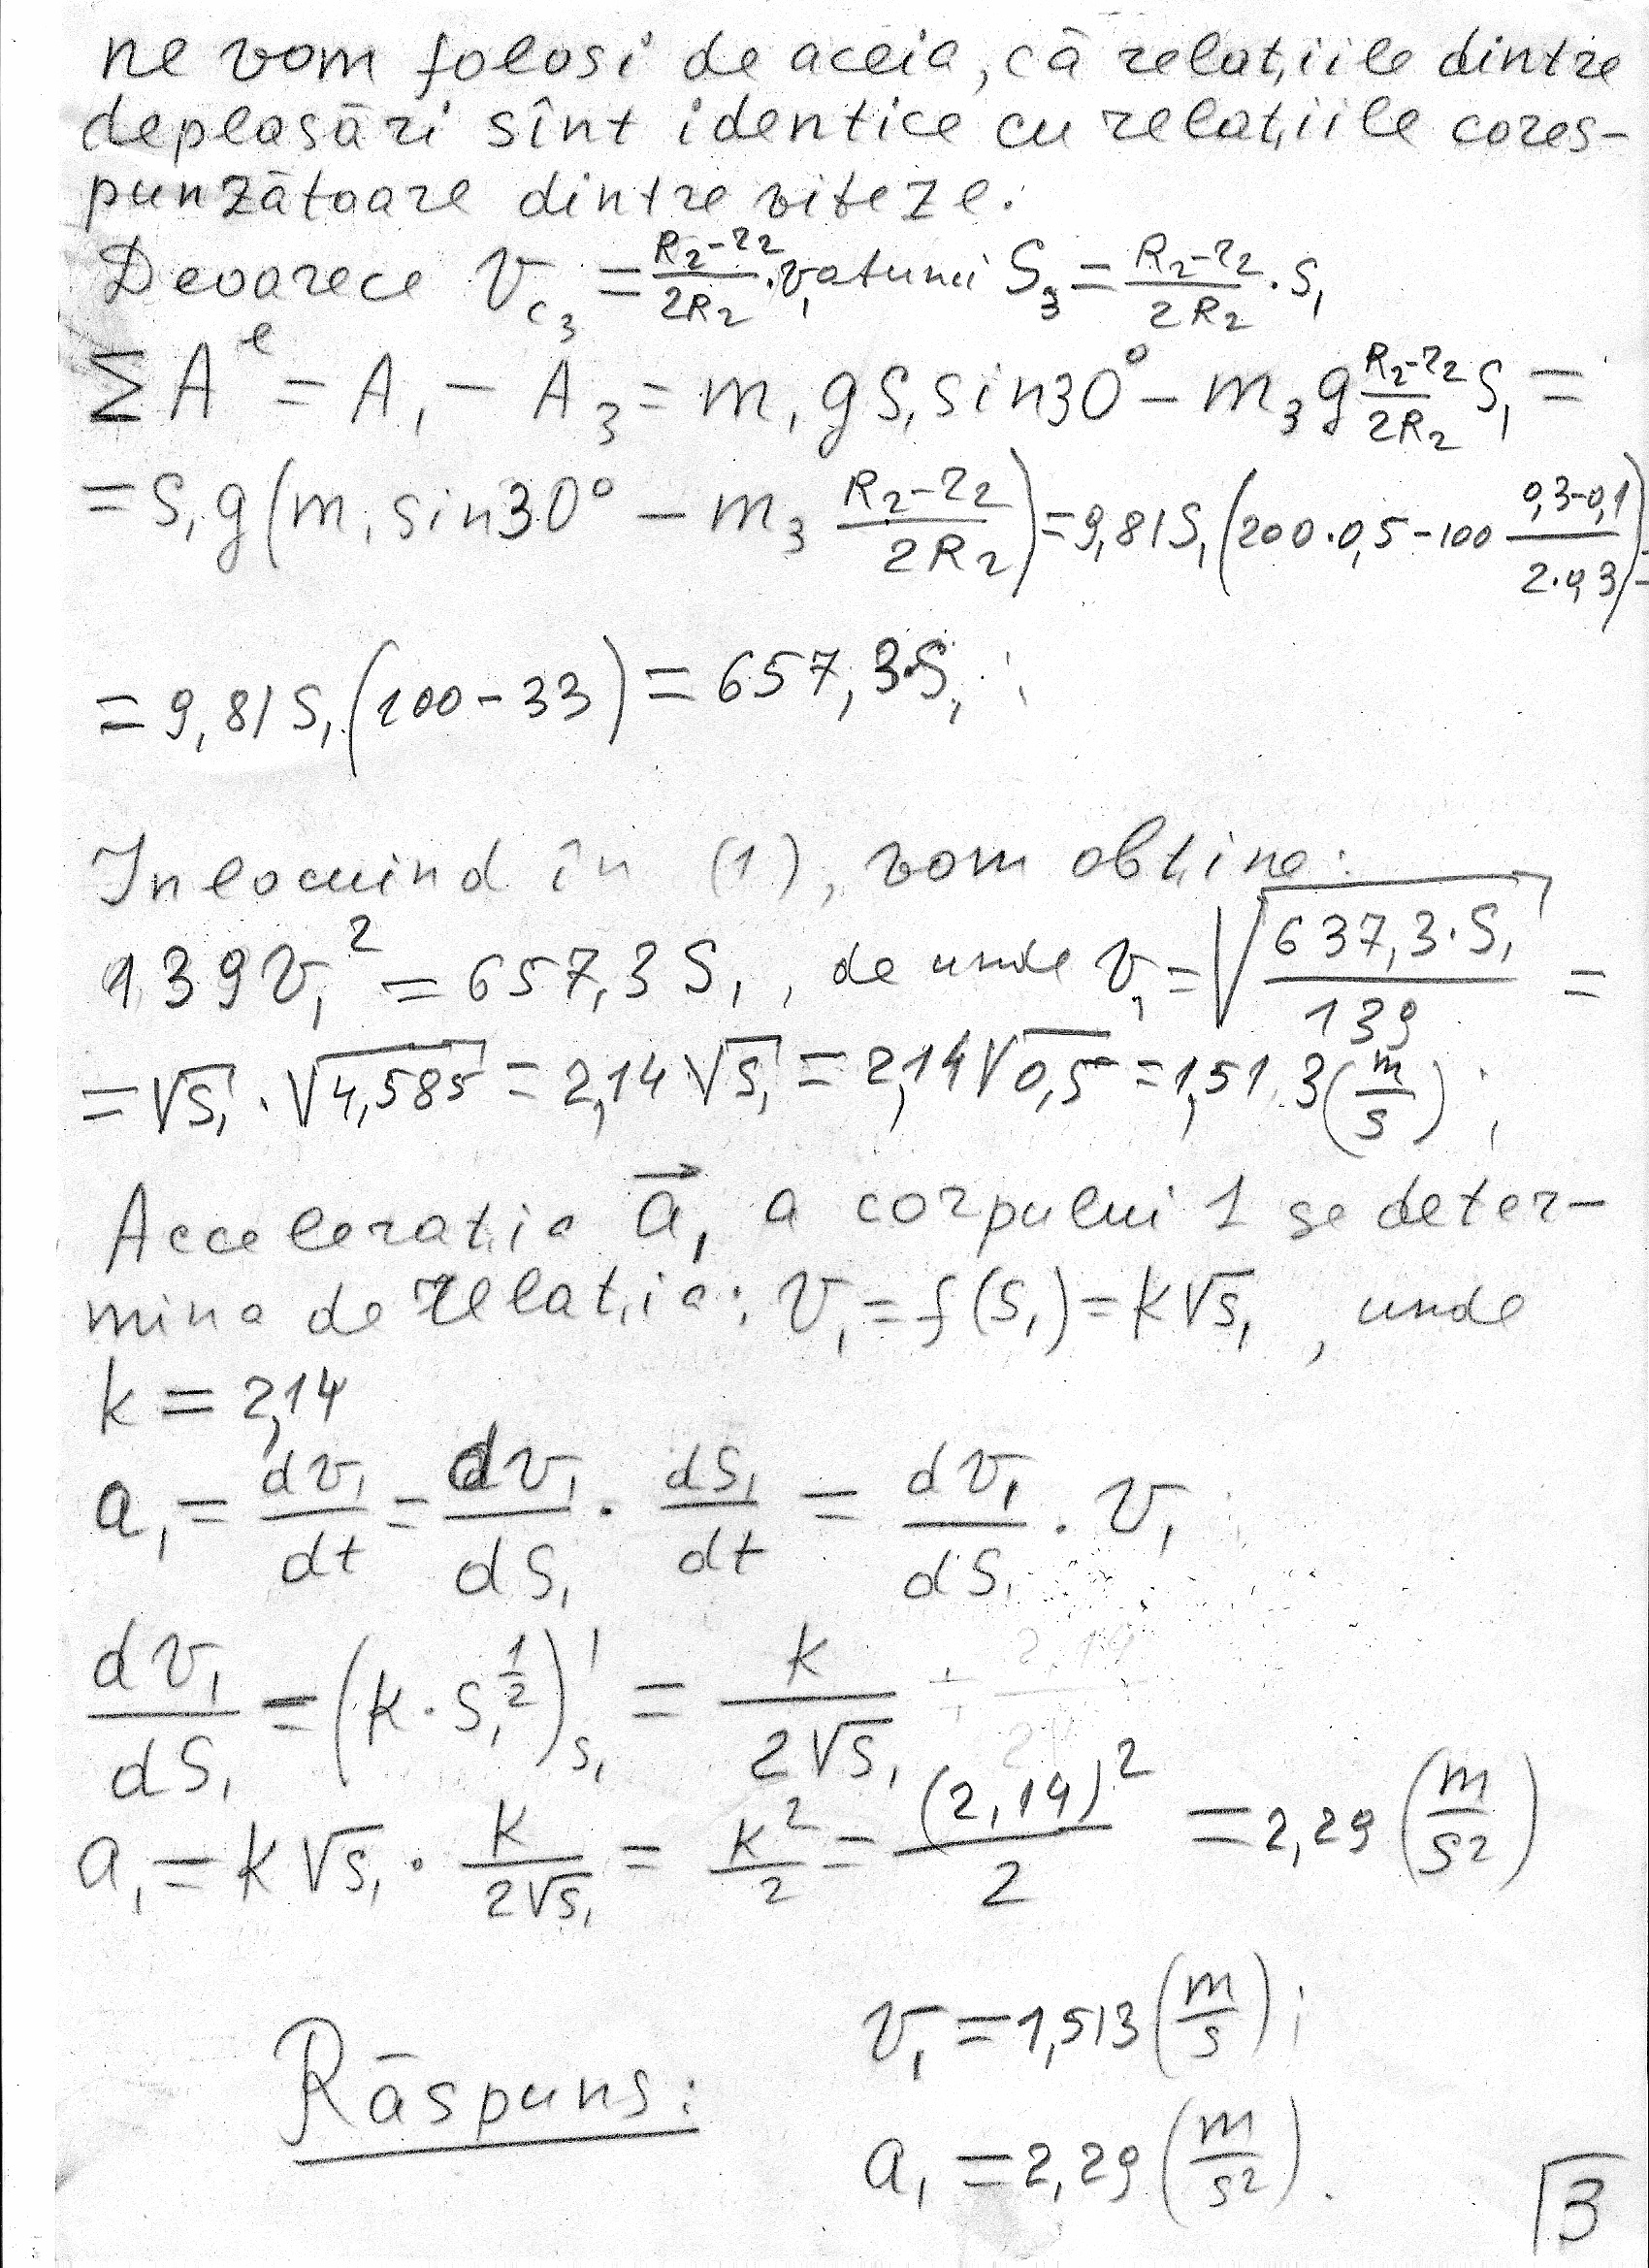 ne vom folosi de aceia, că relațiile dintre
deplasări sînt identice cu relațiile cores-
punzătoare dintre viteze.
Deoarece V_{c3} = \frac{R₂-r₂}{2R₂}·v₁ atunci S₃ = \frac{R₂-r₂}{2R₂}·S₁
ΣA^e = A₁ - A₃ = m₁gS₁sin30° - m₃g\frac{R₂-r₂}{2R₂}S₁ =
= S₁g(m₁sin30° - m₃\frac{R₂-r₂}{2R₂}) = 9,81S₁(200·0,5-100\frac{0,3-0,1}{2·0,3}) =
= 9,81S₁(100-33) = 657,3·S₁;
Inlocuind în (1), vom obține:
139v₁² = 657,3S₁, de unde v₁ = \sqrt{\frac{637,3·S₁}{139}} =
= √S₁·√4,585 = 2,14√S₁ = 2,14√0,5 = 1,513(\frac{m}{s});
Acceleratia \vec{a}₁ a corpului 1 se deter-
mina de relația: v₁ = f(S₁) = k√S₁, unde
k = 2,14
a₁ = \frac{dv₁}{dt} = \frac{dv₁}{dS₁}·\frac{dS₁}{dt} = \frac{dv₁}{dS₁}·v₁;
\frac{dv₁}{dS₁} = (k·S₁^{\frac{1}{2}})'_{S₁} = \frac{k}{2√S₁}
a₁ = k√S₁·\frac{k}{2√S₁} = \frac{k²}{2} = \frac{(2,14)²}{2} = 2,29(\frac{m}{s²})
v₁ = 1,513(\frac{m}{s});
Răspuns:
a₁ = 2,29(\frac{m}{s²}).
3